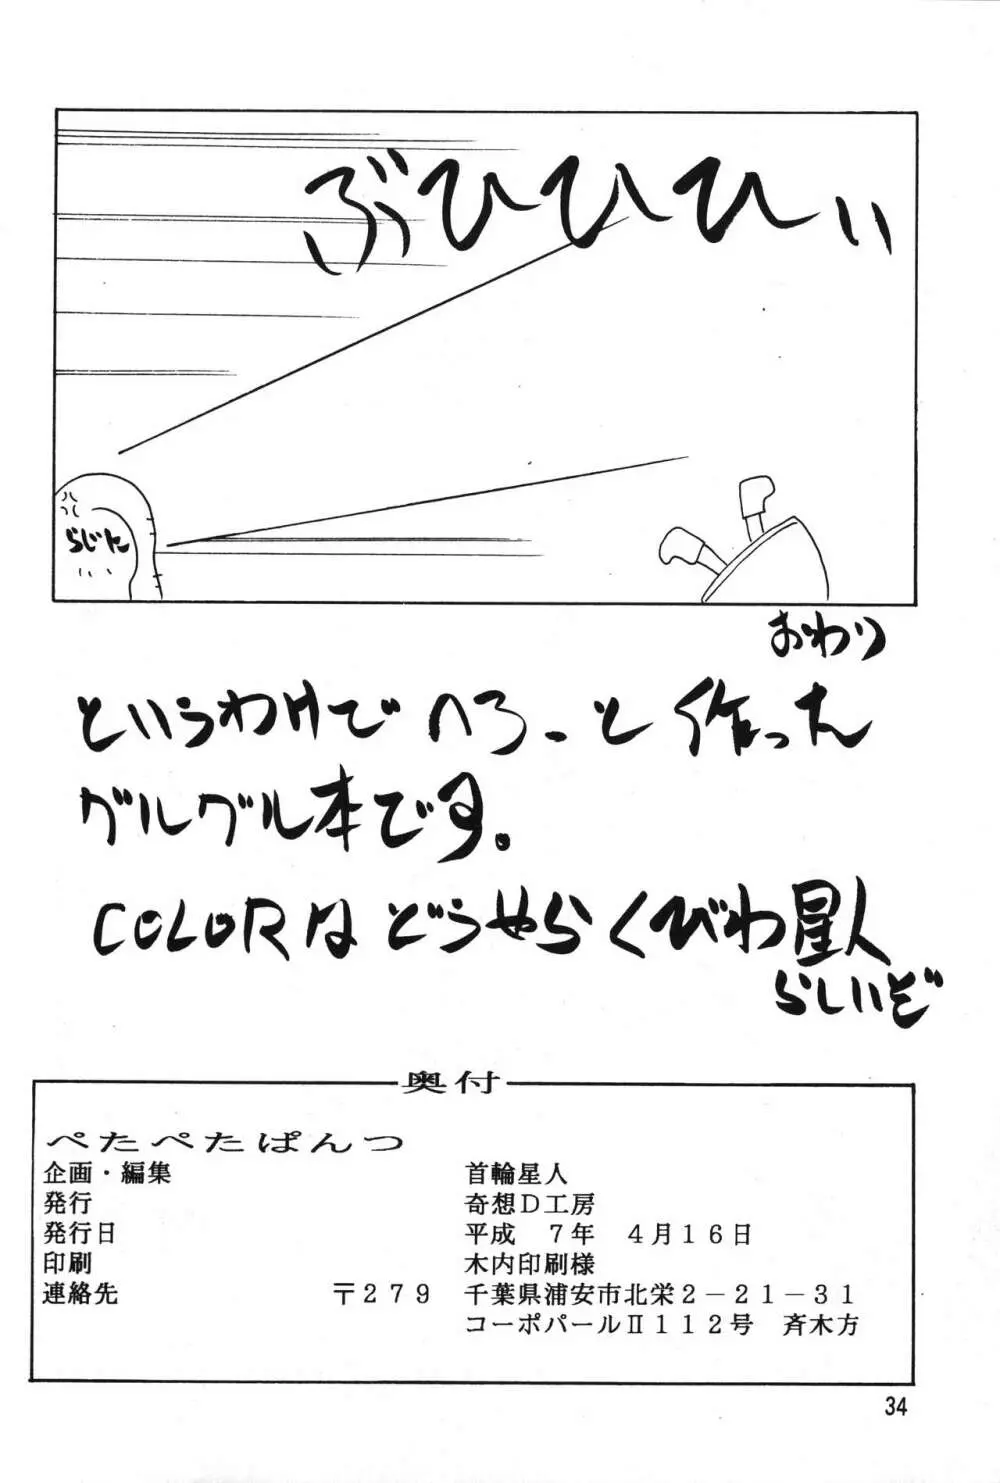 ぶひひひぃ
らじにん
おわり
というわけで へろーと 作った
グルグル本です。
COLORは どうやら くびわ星人
らしいぞ
奥付
ぺたぺたぱんつ
企画・編集 首輪星人
発行 奇想D工房
発行日 平成 7年 4月16日
印刷 木内印刷様
連絡先 〒279 千葉県浦安市北栄2-21-31
コーポパールⅡ112号 斉木方
34